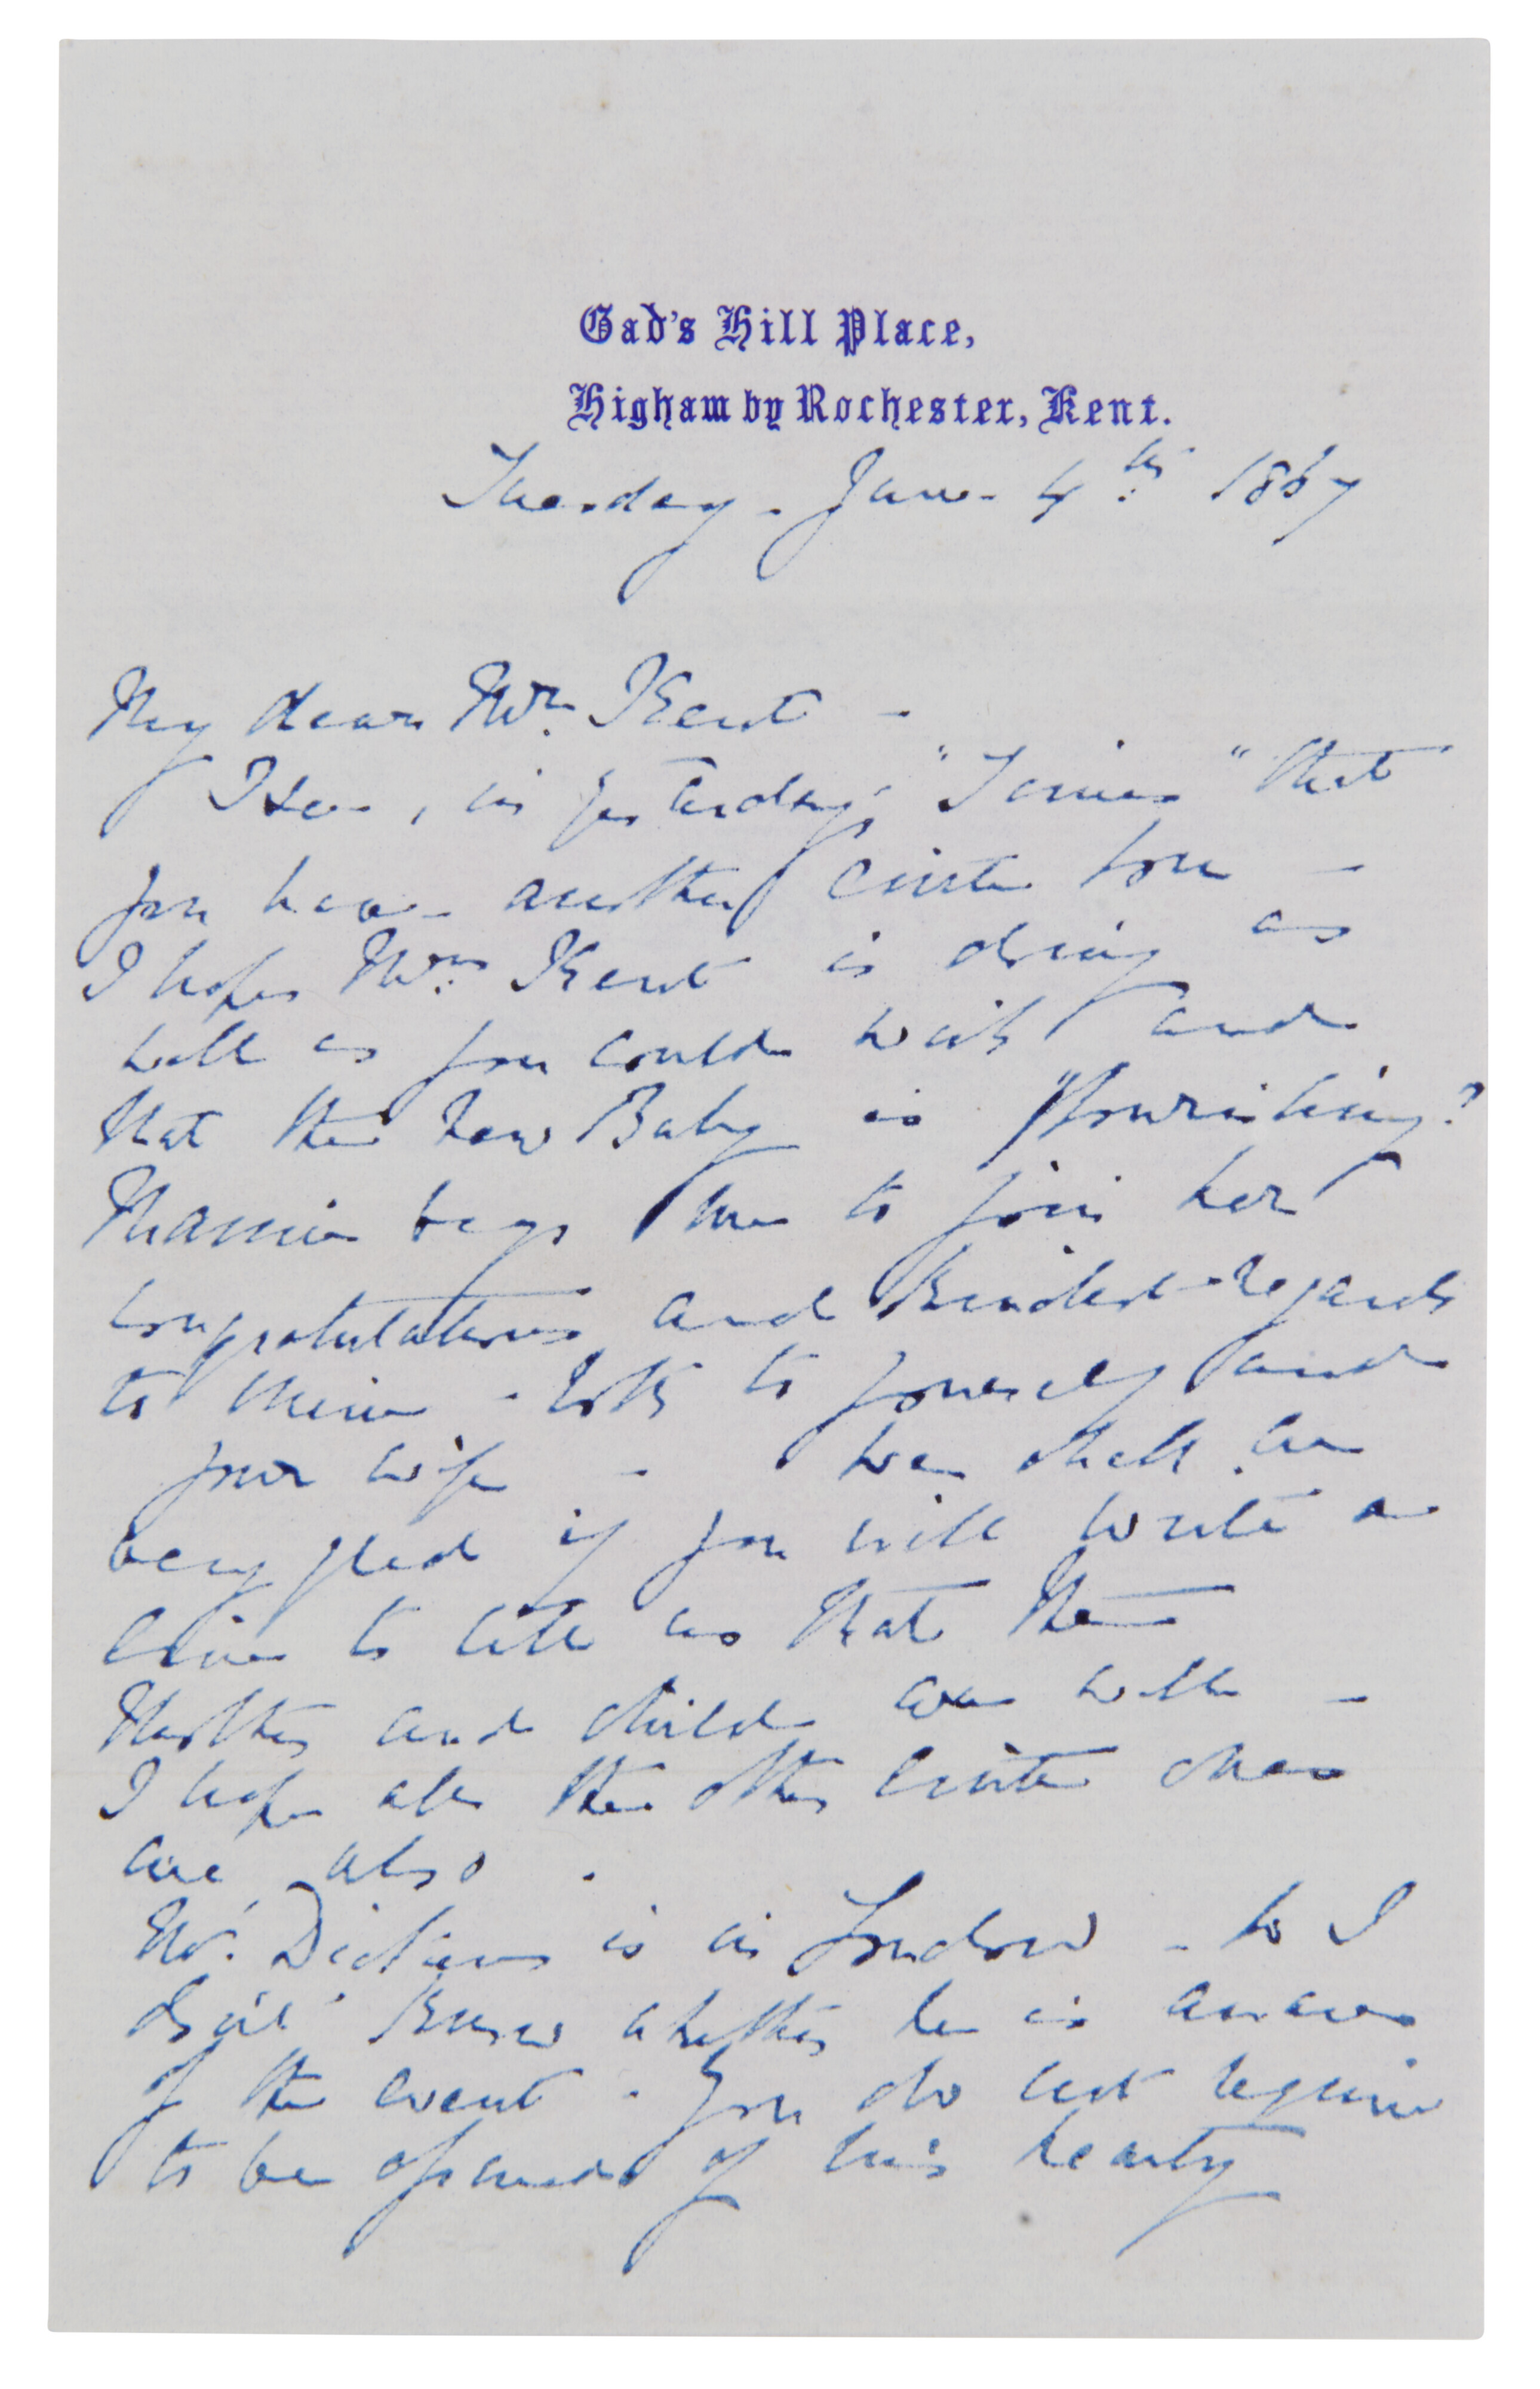 Gad's Hill Place,
Higham by Rochester, Kent.
Tuesday - June 4th 1867
My dear Mr. Kent -
I see, in yesterday's "Times" that
you have another little son -
I hope Mrs. Kent is doing as
well as you could wish and
that the new Baby is flourishing?
Mamie begs me to join her
congratulations and kindest regards
to mine - both to yourself and
your wife - We shall be
very glad if you will write a
line to tell us that the
Mother and child are well -
I hope all the other little ones
are also.
Mr. Dickens is in London - so I
don't know whether he is aware
of the event - You do not require
to be assured of his hearty